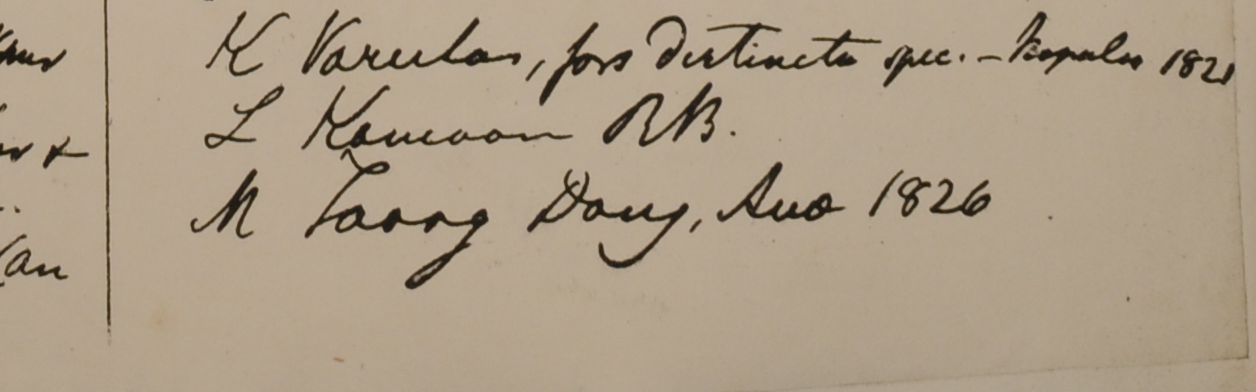 K Varietas, fors distincta spec. – Napalia 1821
L Kamaon RB.
M Taong Dong, Ava 1826
an